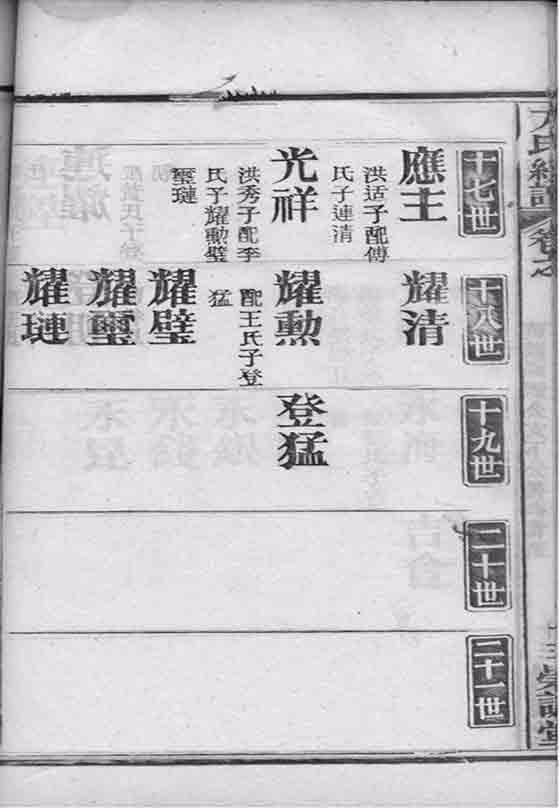 十七世
應主
洪适子配傅
氏子連清
光祥
洪秀子配李
氏子耀勳璧
璽璉
十八世
耀清
耀勳
配王氏子登
猛
耀璧
耀璽
耀璉
十九世
登猛
二十世
二十一世